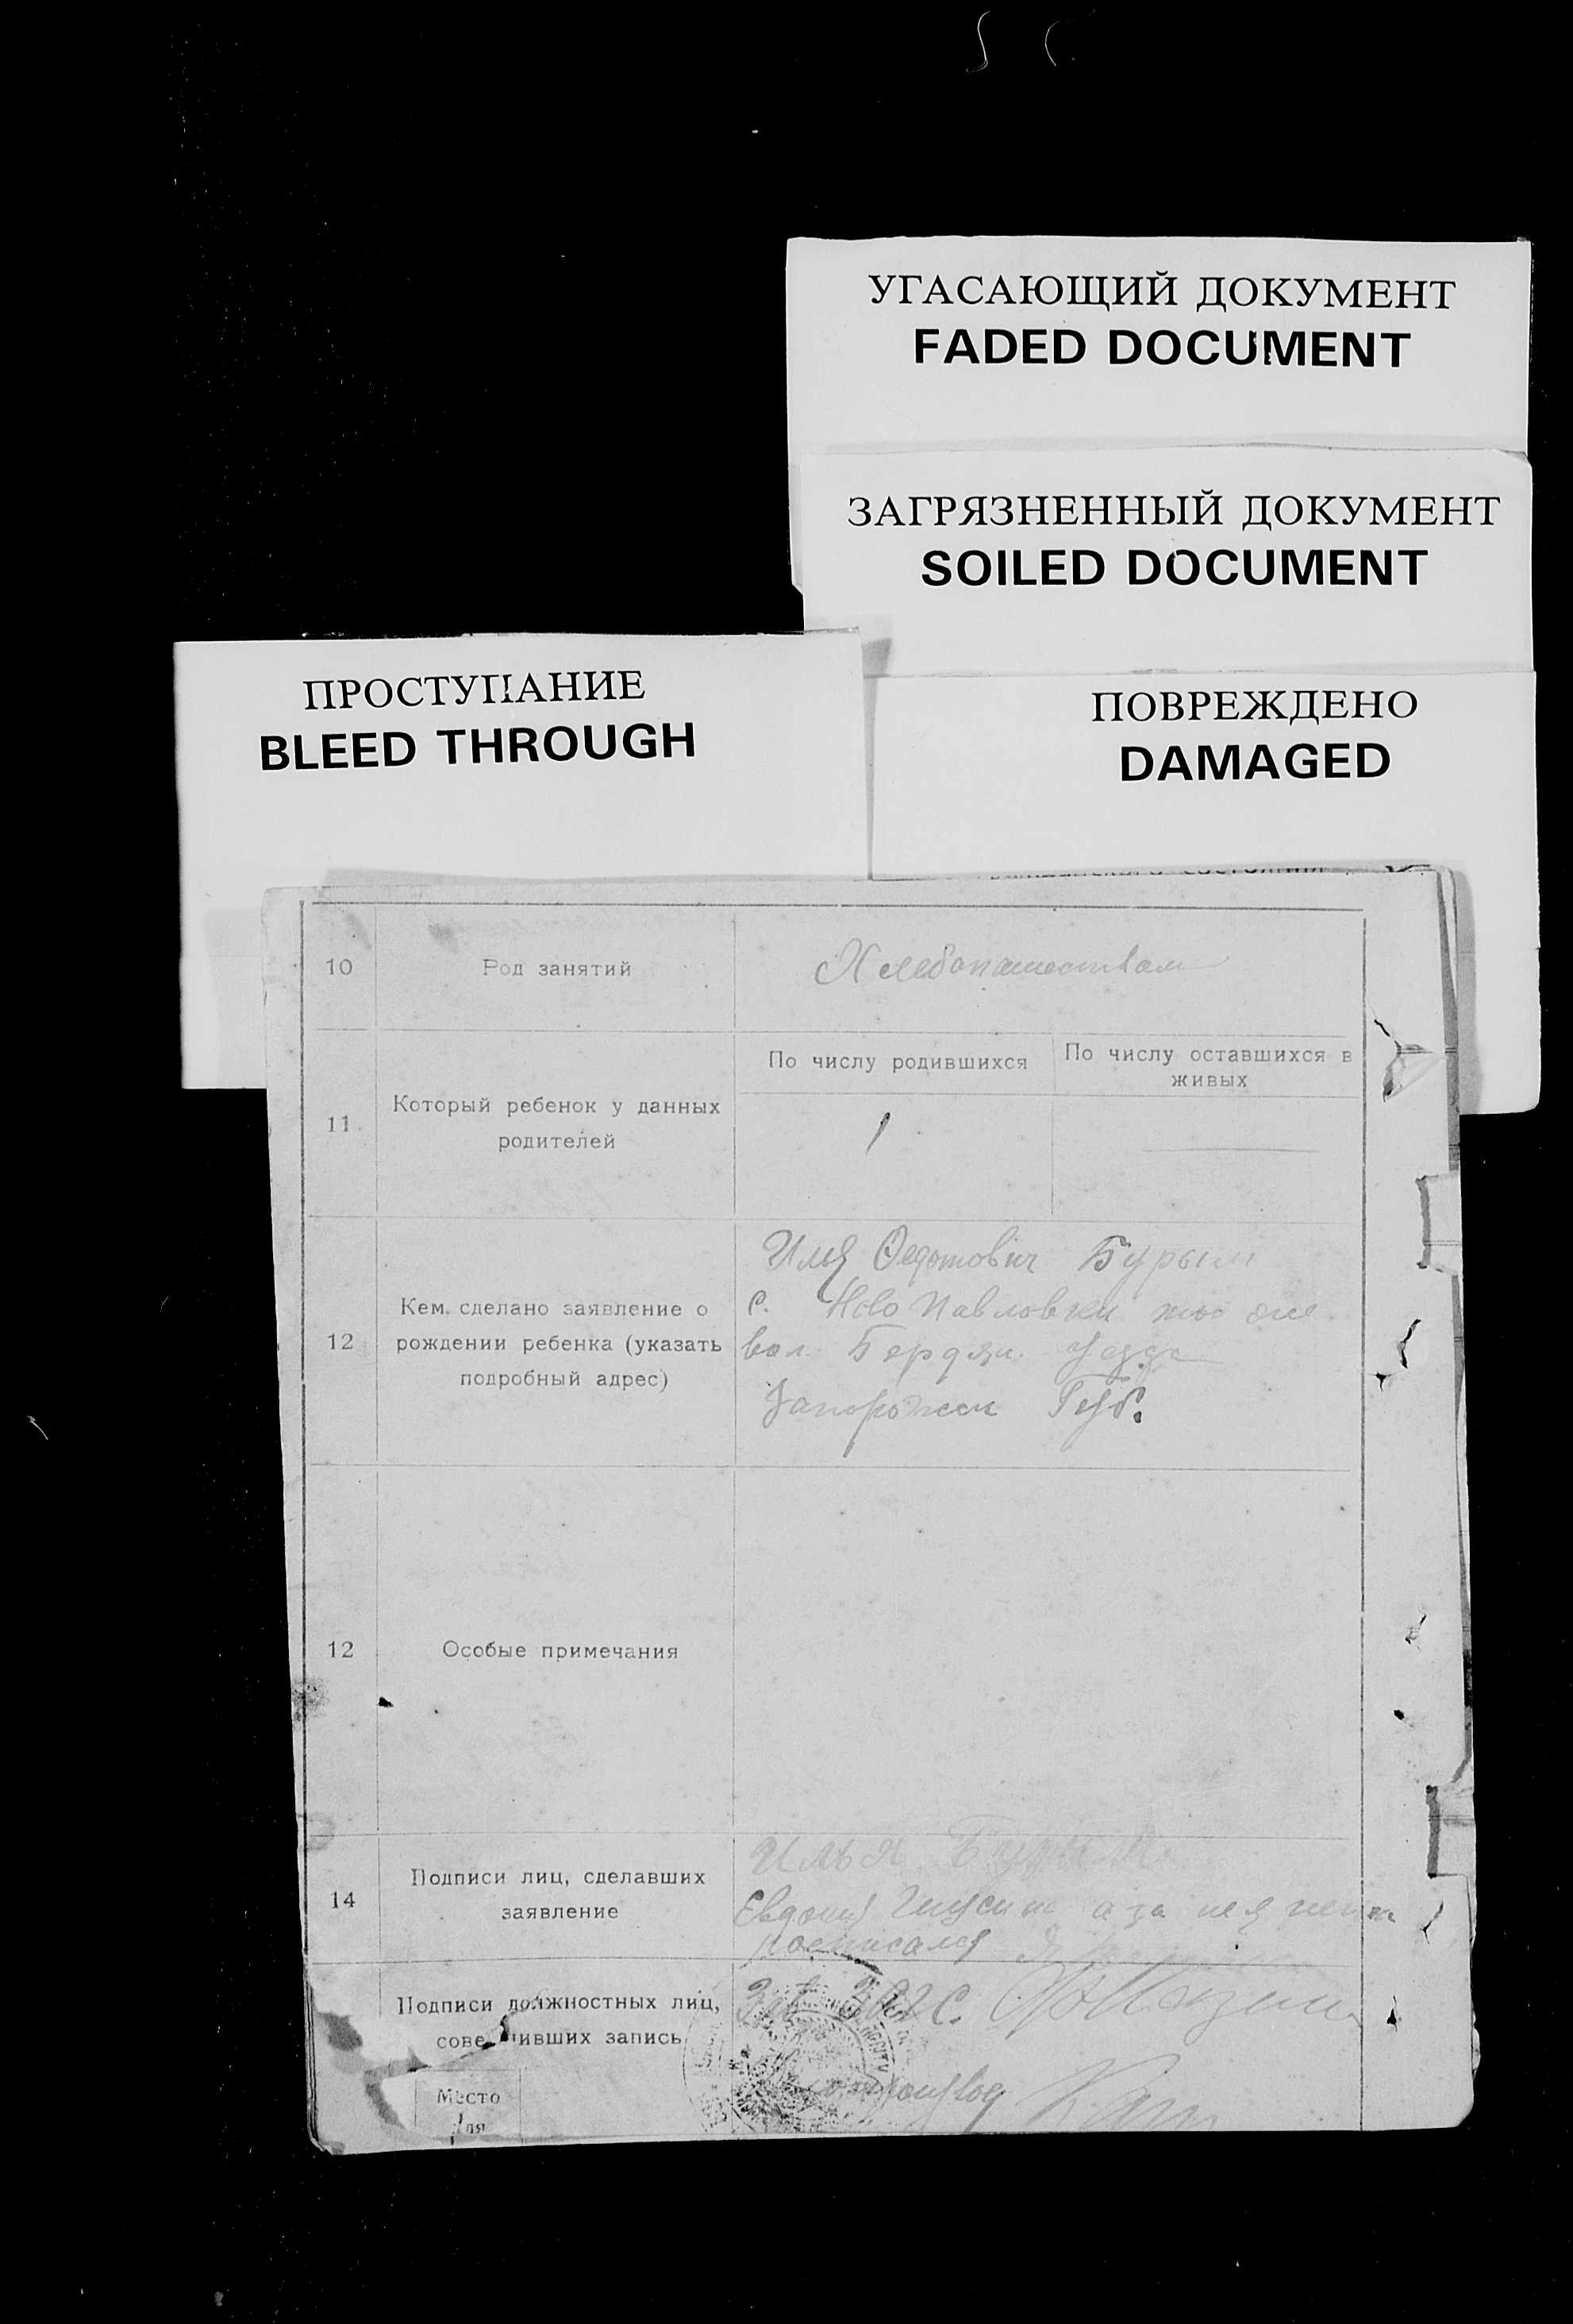 УГАСАЮЩИЙ ДОКУМЕНТ
FADED DOCUMENT
ЗАГРЯЗНЕННЫЙ ДОКУМЕНТ
SOILED DOCUMENT
ПРОСТУПАНИЕ
BLEED THROUGH
ПОВРЕЖДЕНО
DAMAGED
10
Род занятий
Хлебопашеством
11
Который ребенок у данных
родителей
По числу родившихся
По числу оставшихся в
живых
1
12
Кем сделано заявление о
рождении ребенка (указать
подробный адрес)
Илья Федотович Бурым
с. Ново Павловки той же
вол. Бердян. Уезда
Запорожск Губ.
12
Особые примечания
14
Подписи лиц, сделавших
заявление
Илья Бурым
Евдокия а за нея
росписался
Подписи должностных лиц,
сове шивших запись
Зав ЗАГС.
Место
для